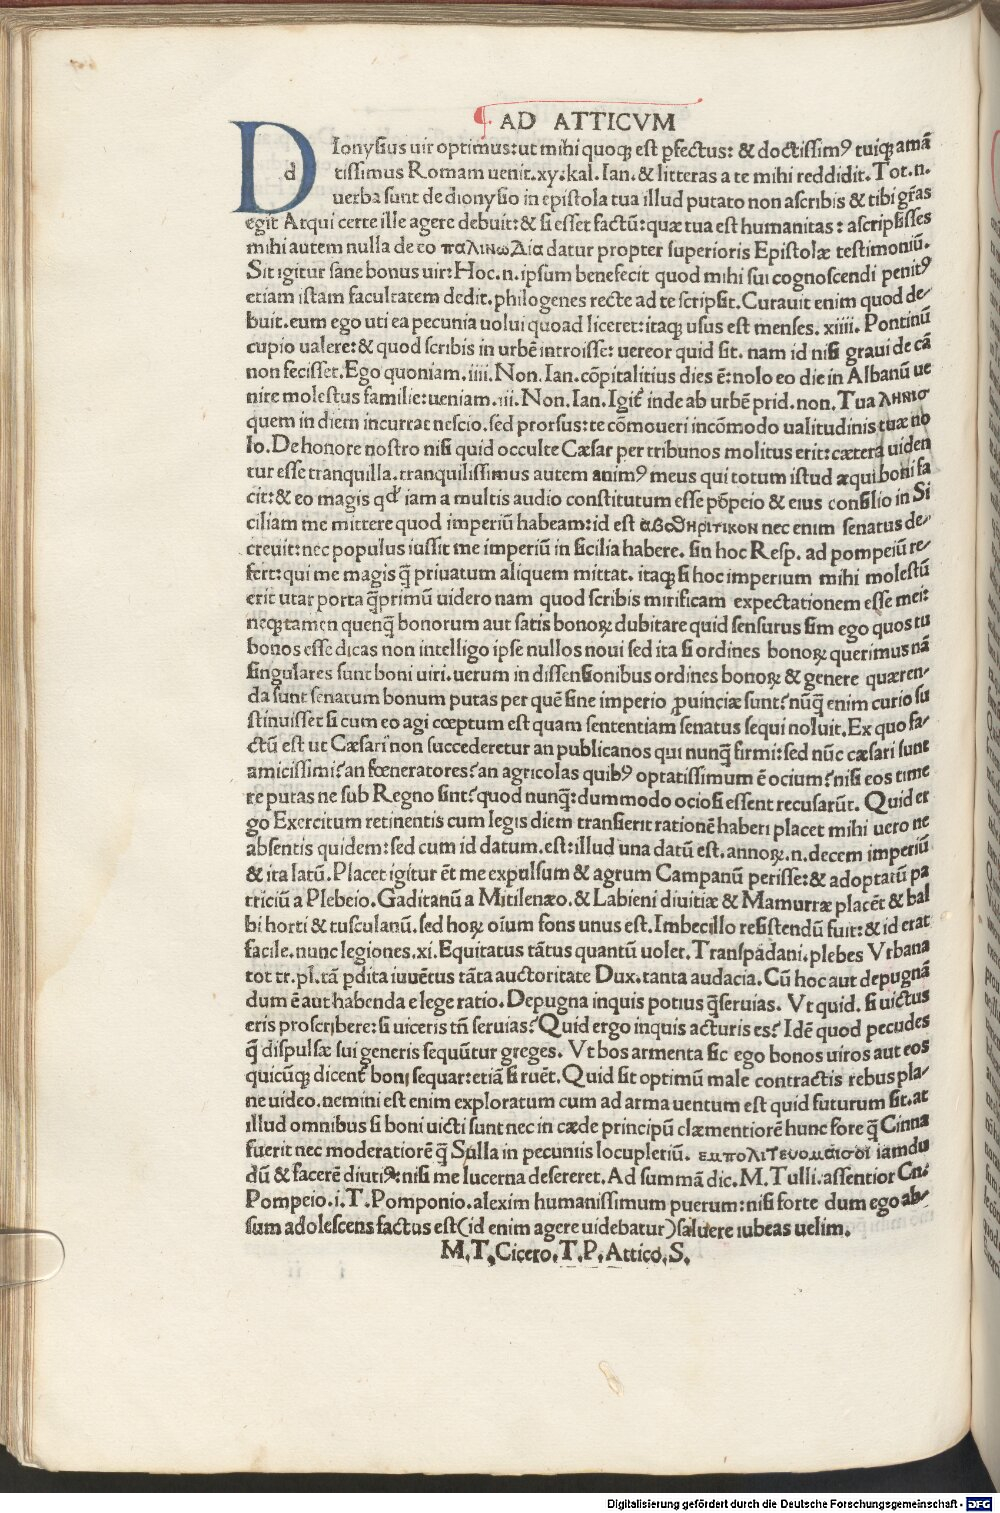 AD ATTICVM
DIonysius uir optimus: ut mihi quoqꝫ est ꝑfectus: & doctissimꝰ tuiqꝫ amā
d tissimus Romam uenit. xy. kal. Ian. & litteras a te mihi reddidit. Tot. n.
uerba sunt de dionysio in epistola tua illud putato non ascribis & tibi gr̄as
egit Atqui certe ille agere debuit: & si esset factū: quæ tua est humanitas: ascripsisses
mihi autem nulla de eo παλινωΔια datur propter superioris Epistolæ testimoniū.
Sit igitur sane bonus uir: Hoc. n. ipsum benefecit quod mihi sui cognoscendi penitꝰ
etiam istam facultatem dedit. philogenes recte ad te scripsit. Curauit enim quod de-
buit. eum ego uti ea pecunia uolui quoad liceret: itaqꝫ usus est menses. xiiii. Pontinū
cupio ualere: & quod scribis in urbē introisse: uereor quid sit. nam id nisi graui de cā
non fecisset. Ego quoniam. iiii. Non. Ian. cōpitalitius dies ē: nolo eo die in Albanū ue
nire molestus familie: ueniam. iii. Non. Ian. Igit̄ inde ab urbē prid. non. Tua ληπισ
quem in diem incurrat nescio. sed prorsus: te cōmoueri incōmodo ualitudinis tuæ no
lo. De honore nostro nisi quid occulte Cæsar per tribunos molitus erit: cætera uiden
tur esse tranquilla. tranquilissimus autem animꝰ meus qui totum istud æqui boni fa
cit: & eo magis qđ iam a multis audio constitutum esse pōpeio & eius consilio in Si
ciliam me mittere quod imperiū habeam: id est αβδηριτικον nec enim senatus de-
creuit: nec populus iussit me imperiū in sicilia habere. sin hoc Resp. ad pompeiū re-
fert: qui me magis q̄ priuatum aliquem mittat. itaqꝫ si hoc imperium mihi molestū
erit utar porta q̄primū uidero nam quod scribis mirificam expectationem esse mei:
neqꝫ tamen quenq̄ bonorum aut satis bonoꝝ dubitare quid sensurus sim ego quos tu
bonos esse dicas non intelligo ipse nullos noui sed ita si ordines bonoꝝ querimus nā
singulares sunt boni uiri. uerum in dissensionibus ordines bonoꝝ & genere quæren-
da sunt senatum bonum putas per quē sine imperio ꝓuinciæ sunt? nūq̄ enim curio su
stinuisset si cum eo agi cœptum est quam sententiam senatus sequi noluit. Ex quo fa-
ctū est ut Cæsari non succederetur an publicanos qui nunq̄ firmi: sed nūc cæsari sunt
amicissimi? an fœneratores? an agricolas quibꝰ optatissimum ē ocium? nisi eos time
re putas ne sub Regno sint? quod nunq̄: dummodo ociosi essent recusarūt. Quid er
go Exercitum retinentis cum legis diem transierit rationē haberi placet mihi uero ne
absentis quidem: sed cum id datum. est: illud una datū est. annoꝝ. n. decem imperiū
& ita latū. Placet igitur ēt me expulsum & agrum Campanū perisse: & adoptatū pa
triciū a Plebeio. Gaditanū a Mitilenæo. & Labieni diuitiæ & Mamurræ placēt & bal
bi horti & tusculanū. sed hoꝝ oīum fons unus est. Imbecillo resistendū fuit: & id erat
facile. nunc legiones. xi. Equitatus tātus quantū uolet. Transpadani. plebes Vrbana
tot tr. pl. tā ꝑdita iuuētus tāta auctoritate Dux. tanta audacia. Cū hoc aut depugnā
dum ē aut habenda e lege ratio. Depugna inquis potius q̄ seruias. Vt quid. si uictus
eris proscribere: si uiceris tn̄ seruias? Quid ergo inquis acturis es? Idē quod pecudes
q̄ dispulsæ sui generis sequūtur greges. Vt bos armenta sic ego bonos uiros aut eos
quicūqꝫ dicent̄ boni sequar: etiā si ruēt. Quid sit optimū male contractis rebus pla-
ne uideo. nemini est enim exploratum cum ad arma uentum est quid futurum sit. at
illud omnibus si boni uicti sunt nec in cæde principū clæmentiorē hunc fore q̄ Cinna
fuerit nec moderatiorē q̄ Sulla in pecuniis locupletiū. εμπολιτευομαισοι iamdu
dū & facerē diutiꝰ: nisi me lucerna desereret. Ad summā dic. M. Tulli. assentior Cn.
Pompeio. i. T. Pomponio. alexim humanissimum puerum: nisi forte dum ego ab-
sum adolescens factus est (id enim agere uidebatur) saluere iubeas uelim.
M. T. Cicero. T. P. Attico. S.
Digitalisierung gefördert durch die Deutsche Forschungsgemeinschaft - DFG